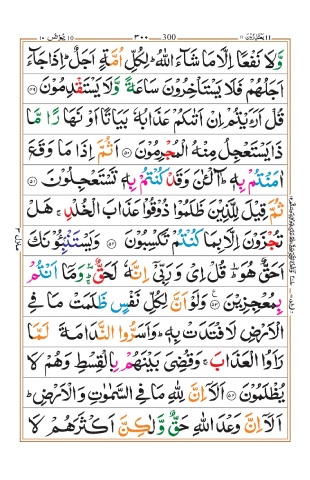 يعتذرون ١١ 300 ٣٠٠ يونس ١٠
وَّلَا نَفۡعًا اِلَّا مَا شَآءَ اللّٰهُ‌ؕ لِكُلِّ اُمَّةٍ اَجَلٌ‌ؕ اِذَا جَآءَ
اَجَلُهُمۡ فَلَا يَسۡتَاۡخِرُوۡنَ سَاعَةً‌ وَّلَا يَسۡتَقۡدِمُوۡنَ ۴۹
قُلۡ اَرَءَيۡتُمۡ اِنۡ اَتٰٮكُمۡ عَذَابُهٗ بَيَاتًا اَوۡ نَهَارًا مَّا
ذَا يَسۡتَعۡجِلُ مِنۡهُ الۡمُجۡرِمُوۡنَ ۵۰ اَثُمَّ اِذَا مَا وَقَعَ
اٰمَنۡتُمۡ بِهٖؕ آٰلۡـٰٔنَ وَقَدۡ كُنۡتُمۡ بِهٖ تَسۡتَعۡجِلُوۡنَ ۵۱
ثُمَّ قِيۡلَ لِلَّذِيۡنَ ظَلَمُوۡا ذُوۡقُوۡا عَذَابَ الۡخُـلۡدِ‌ۚ هَلۡ
تُجۡزَوۡنَ اِلَّا بِمَا كُنۡتُمۡ تَكۡسِبُوۡنَ ۵۲ وَيَسۡتَنۡۢبِـُٔوۡنَكَ
اَحَقٌّ هُوَ‌ ؕ قُلۡ اِىۡ وَرَبِّىۡۤ اِنَّهٗ لَحَقٌّ ‌ؔؕ وَمَاۤ اَنۡتُمۡ
بِمُعۡجِزِيۡنَ ۵۳ وَلَوۡ اَنَّ لِكُلِّ نَفۡسٍ ظَلَمَتۡ مَا فِى
الۡاَرۡضِ لَافۡتَدَتۡ بِهٖ‌ؕ وَاَسَرُّوا النَّدَامَةَ لَمَّا
رَاَوُا الۡعَذَابَ‌ۚ وَقُضِىَ بَيۡنَهُمۡ بِالۡقِسۡطِ‌ وَهُمۡ لَا
يُظۡلَمُوۡنَ ۵۴ اَلَاۤ اِنَّ لِلّٰهِ مَا فِى السَّمٰوٰتِ وَالۡاَرۡضِ‌ؕ
اَلَاۤ اِنَّ وَعۡدَ اللّٰهِ حَقٌّ وَّلٰـكِنَّ اَكۡثَرَهُمۡ لَا